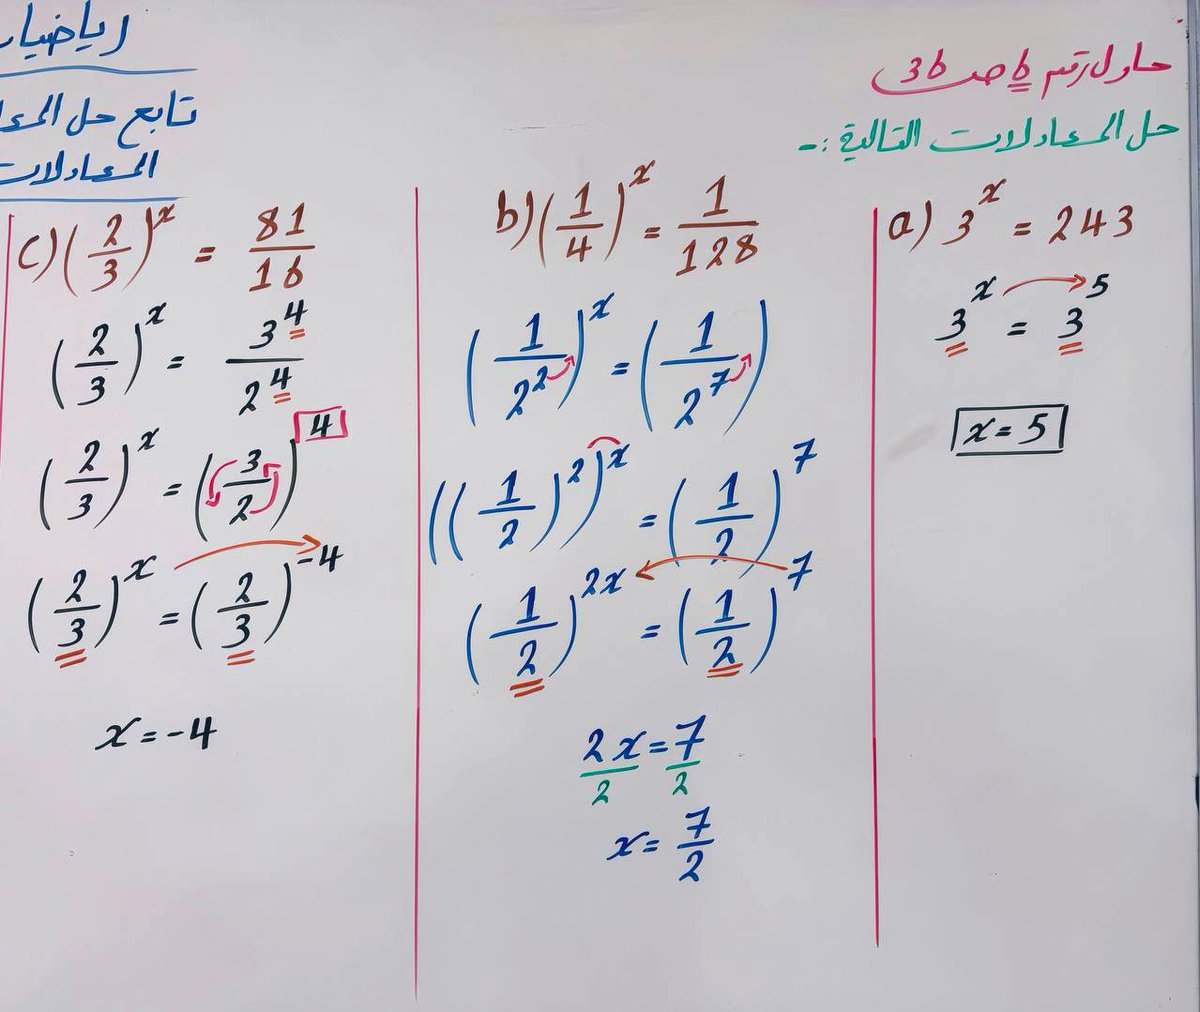 رياضيات
تابع حل المعا
المعادلات
حاول رقم 6 صـ 36
حل المعادلات التالية :-
a) 3^x = 243
3^x = 3^5
x = 5
b) (1/4)^x = 1/128
(1/2^2)^x = (1/2^7)
((1/2)^2)^x = (1/2)^7
(1/2)^2x = (1/2)^7
2x/2 = 7/2
x = 7/2
c) (2/3)^x = 81/16
(2/3)^x = 3^4/2^4
(2/3)^x = (3/2)^4
(2/3)^x = (2/3)^-4
x = -4